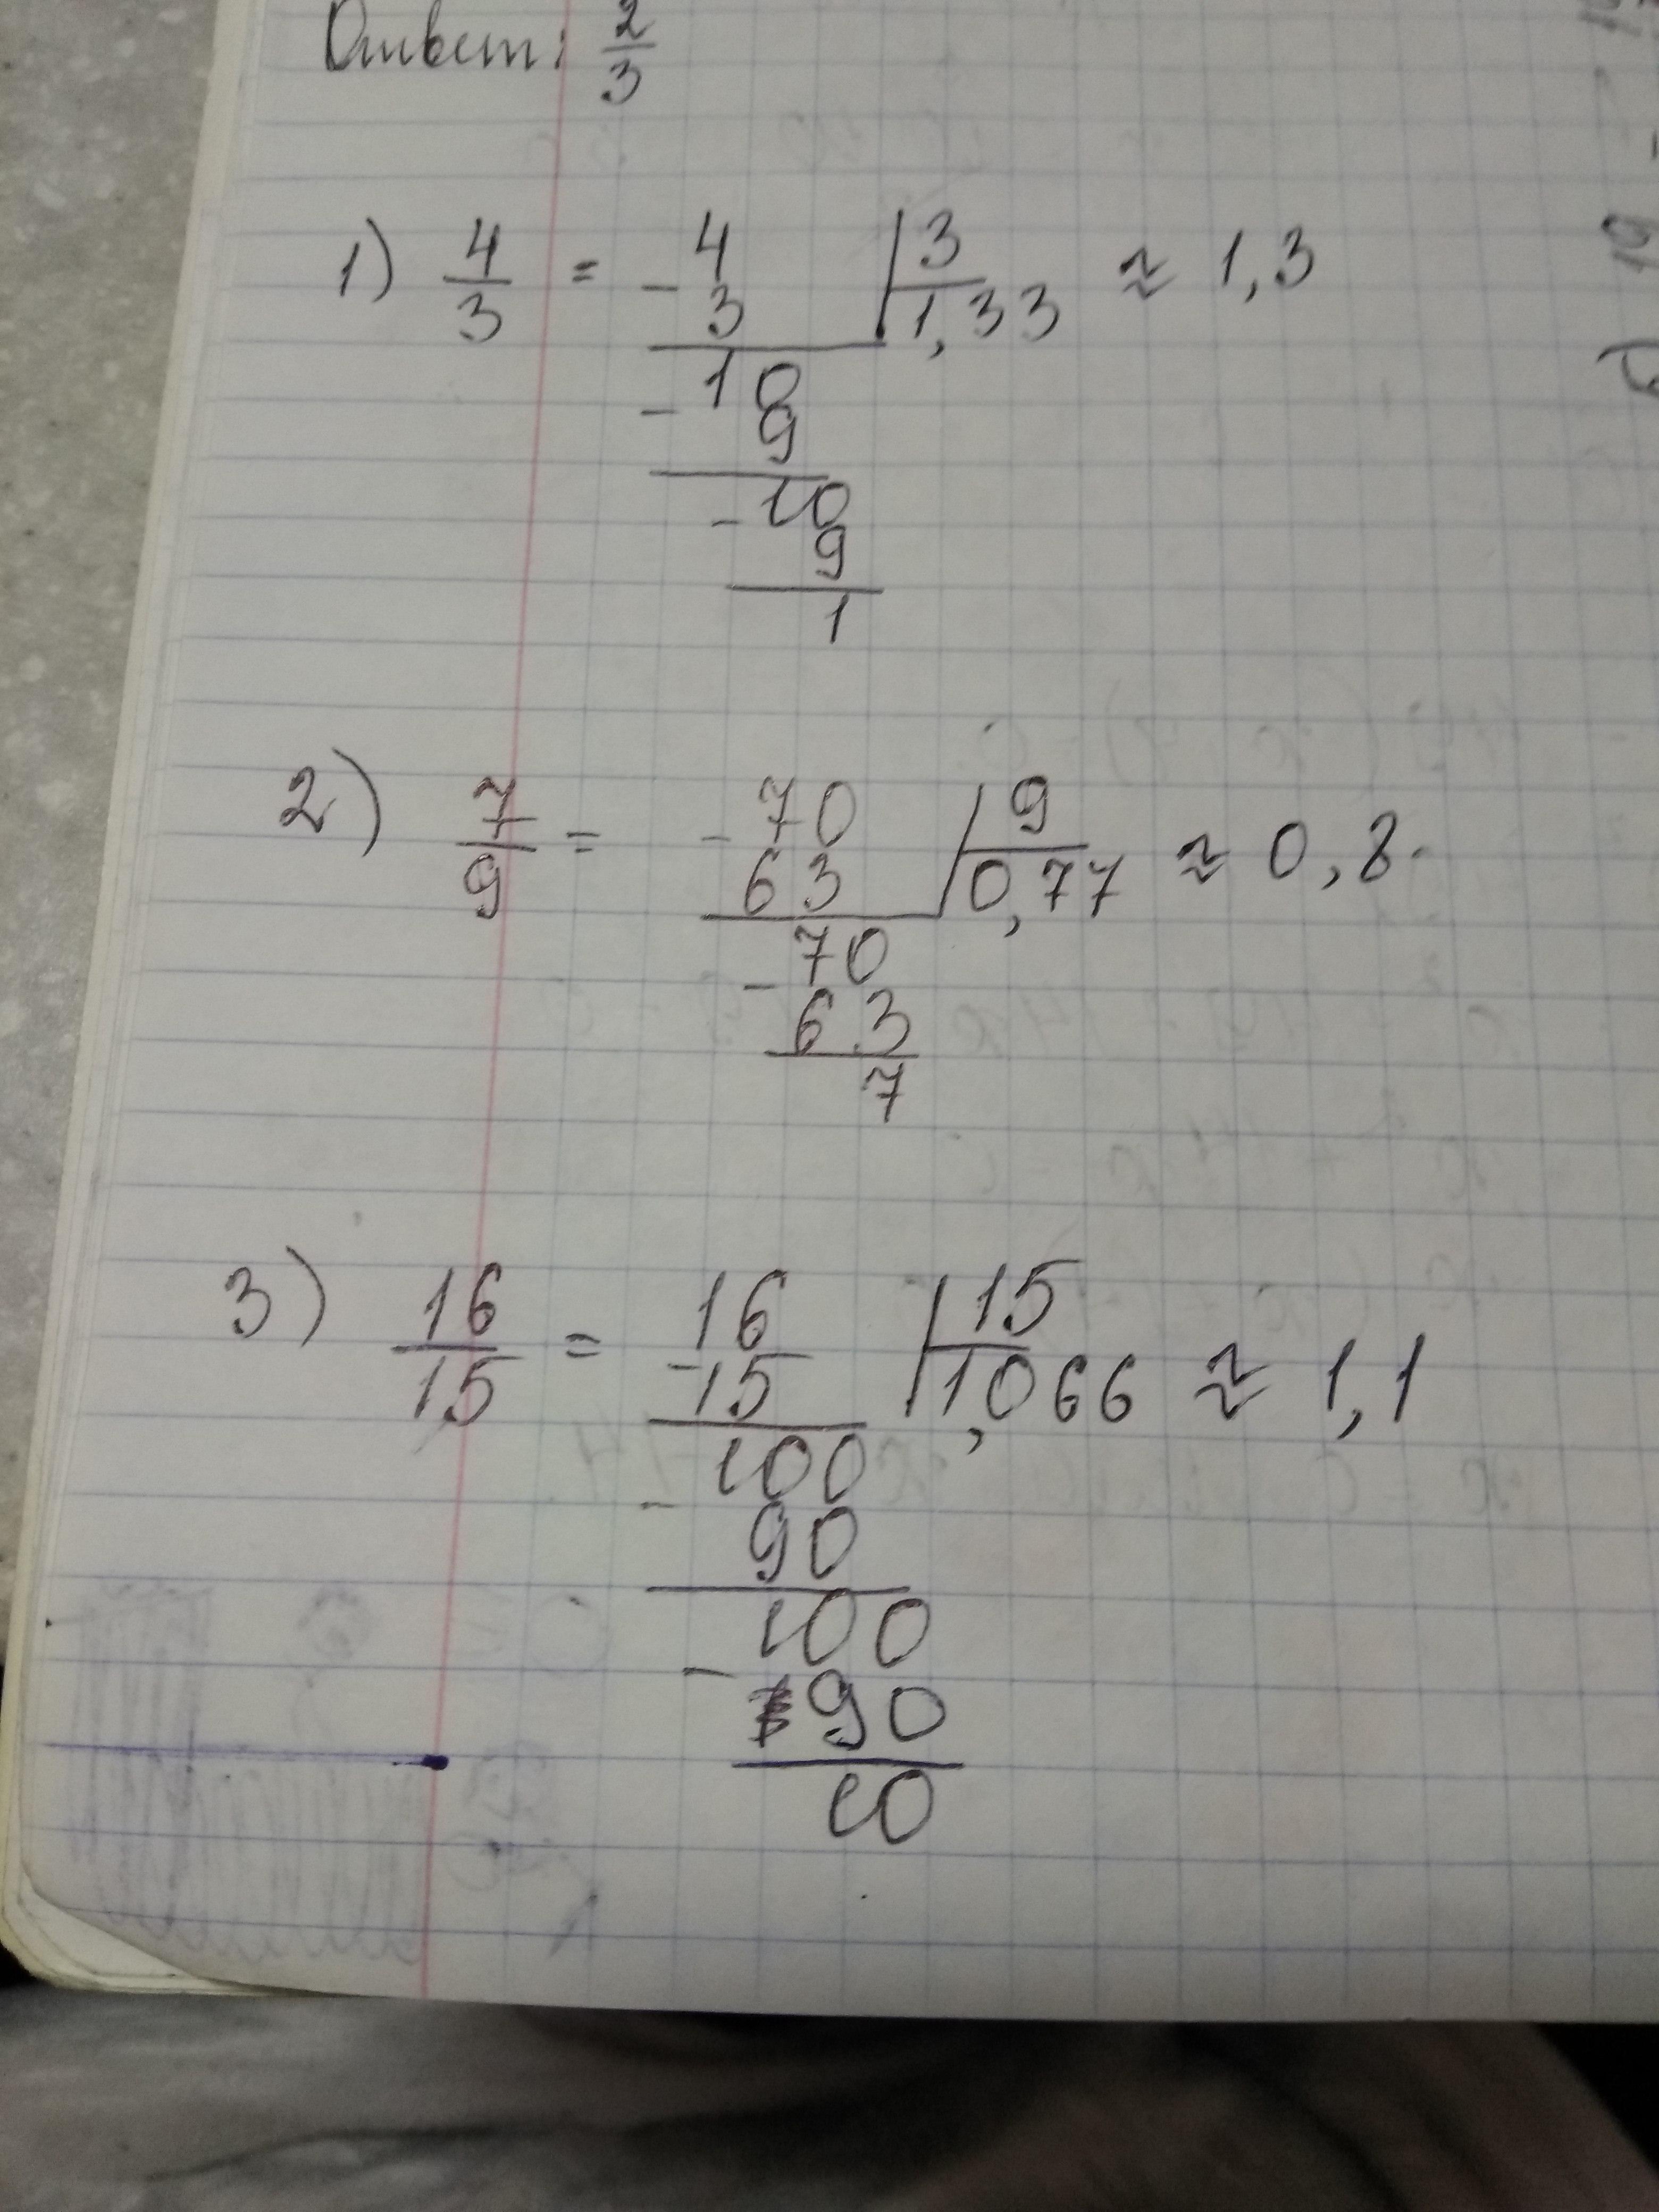 Ответ: 2/3
1) 4/3 = - 4 | 3 ≈ 1,3
3 | 1,33
- 10
9
- 10
9
1
2) 7/9 = - 70 | 9 ≈ 0,8
63 | 0,77
- 70
63
7
3) 16/15 = - 16 | 15 ≈ 1,1
15 | 1,066
- 100
90
- 100
90
10